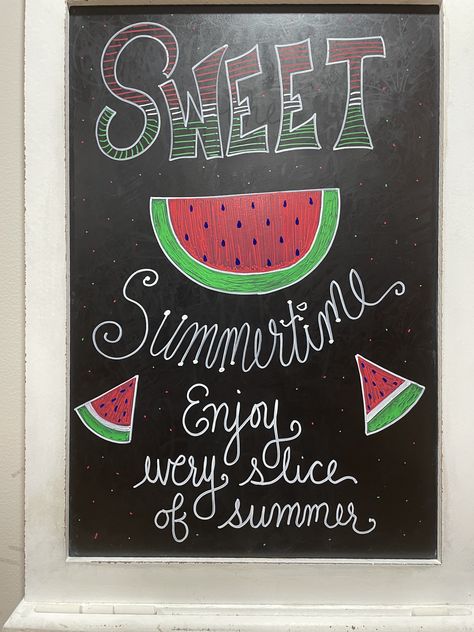 SWEET
Summertime
Enjoy
every slice
of summer